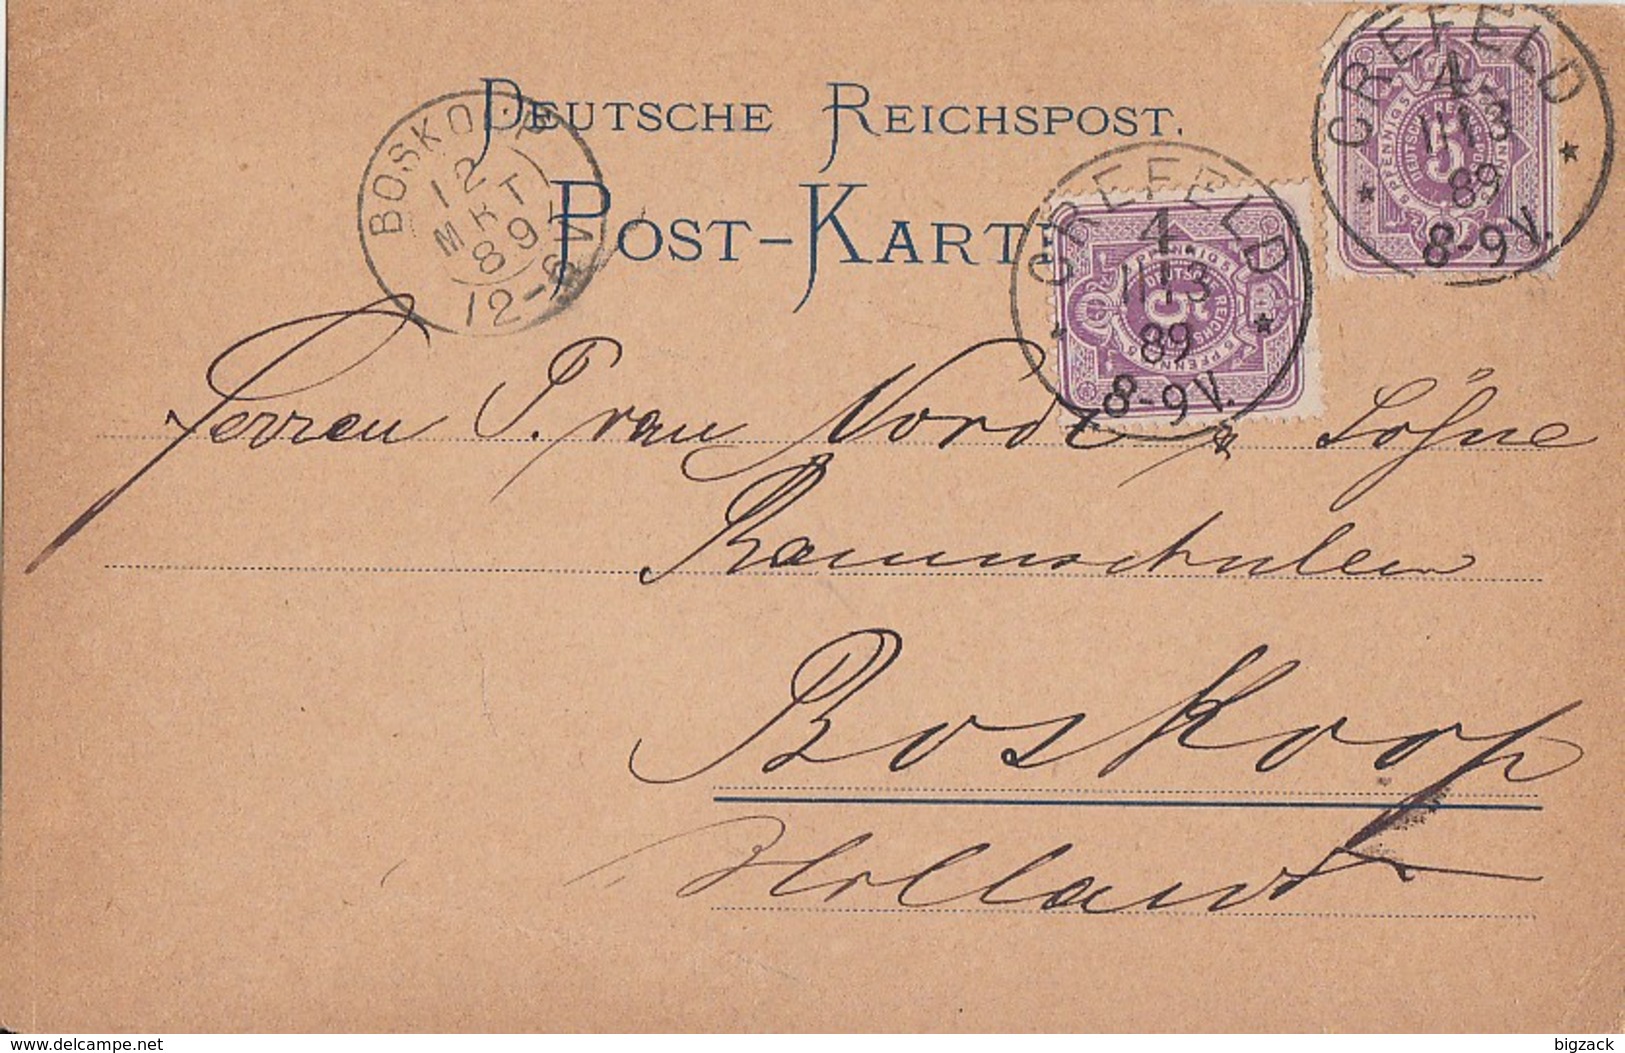 DEUTSCHE REICHSPOST.
POST-KARTE
BOSKOOP
12
MRT
89
12-
CREFELD
4.
III 3
89
8-9 V.
CREFELD
4.
III 3
89
8-9 V.
5 PFENNIG 5
5 PFENNIG 5
Herren P. van Nordt & Söhne
Baumschulen
Boskoop
Holland
www.delcampe.net
bigzack